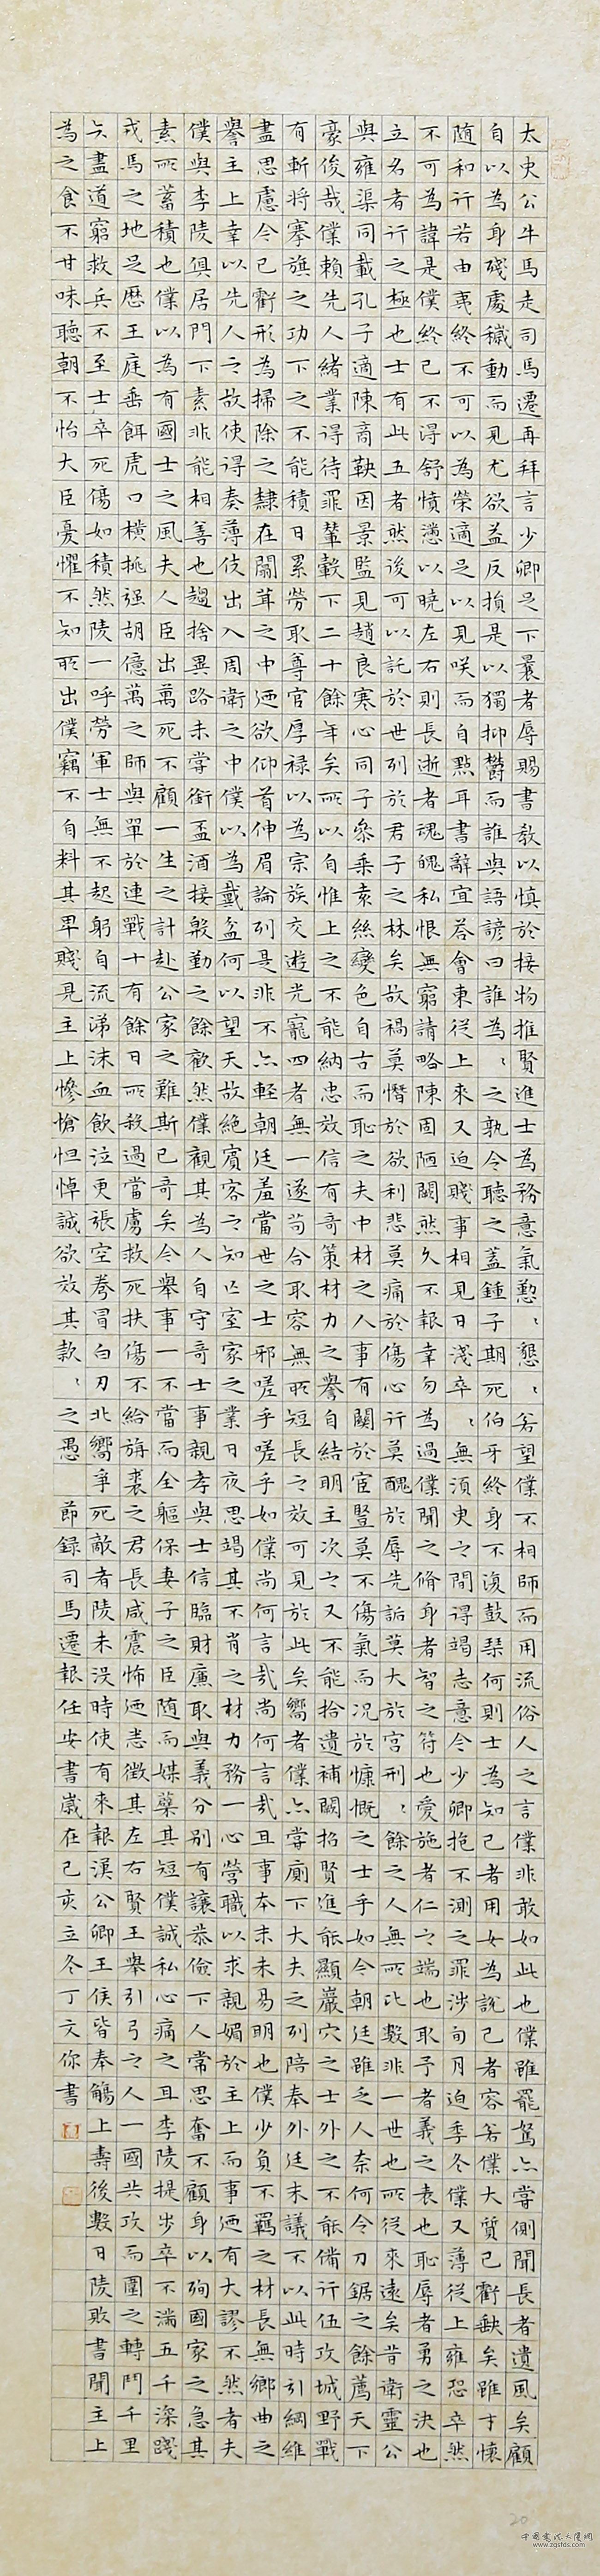 太史公牛馬走司馬遷再拜言少卿足下曩者辱賜書教以慎於接物推賢進士為務意氣懃〻懇〻若望僕不相師而用流俗人之言僕非敢如此也僕雖罷駑亦嘗側聞長者遺風矣顧
自以為身殘處穢動而見尤欲益反損是以獨抑鬱而誰與語諺曰誰為〻之孰令聽之蓋鍾子期死伯牙終身不復鼓琴何則士為知己者用女為說己者容若僕大質已虧缺矣雖才懷
随和行若由夷終不可以為榮適足以見咲而自點耳書辭宜答會東從上來又迫賤事相見日淺卒〻無須臾之間得竭志意今少卿抱不測之罪涉旬月迫季冬僕又薄從上雍恐卒然
不可為諱是僕終已不得舒憤懣以曉左右則長逝者魂魄私恨無窮請略陳固陋闕然久不報幸勿為過僕聞之脩身者智之符也愛施者仁之端也取予者義之表也恥辱者勇之決也
立名者行之極也士有此五者然後可以託於世列於君子之林矣故禍莫憯於欲利悲莫痛於傷心行莫醜於辱先詬莫大於宮刑〻餘之人無所比數非一世也所從來遠矣昔衛靈公
與雍渠同載孔子適陳商鞅因景監見趙良寒心同子參乘袁絲變色自古而恥之夫中材之人事有關於宦豎莫不傷氣而況於慷慨之士乎如今朝廷雖乏人奈何令刀鋸之餘薦天下
豪俊哉僕賴先人緒業得待罪輦轂下二十餘年矣所以自惟上之不能納忠效信有奇策材力之譽自結明主次之又不能拾遺補闕招賢進能顯巖穴之士外之不能備行伍攻城野戰
有斬將搴旗之功下之不能積日累勞取尊官厚祿以為宗族交遊光寵四者無一遂苟合取容無所短長之效可見於此矣嚮者僕亦嘗廁下大夫之列陪奉外廷末議不以此時引綱維
盡思慮今已虧形為掃除之隸在闒茸之中迺欲仰首伸眉論列是非不亦輕朝廷羞當世之士邪嗟乎嗟乎如僕尚何言哉尚何言哉且事本末未易明也僕少負不羈之材長無鄉曲之
譽主上幸以先人之故使得奏薄伎出入周衛之中僕以為戴盆何以望天故絕賓客之知亡室家之業日夜思竭其不肖之材力務一心營職以求親媚於主上而事迺有大謬不然者夫
僕與李陵俱居門下素非能相善也趨捨異路未嘗銜盃酒接慇勤之餘歡然僕觀其為人自守奇士事親孝與士信臨財廉取與義分別有讓恭儉下人常思奮不顧身以殉國家之急其
素所蓄積也僕以為有國士之風夫人臣出萬死不顧一生之計赴公家之難斯已奇矣今舉事一不當而全軀保妻子之臣随而媒櫱其短僕誠私心痛之且李陵提步卒不滿五千深踐
戎馬之地足歷王庭垂餌虎口橫挑強胡億萬之師與單於連戰十有餘日所殺過當虜救死扶傷不給旃裘之君長咸震怖迺悉徵其左右賢王舉引弓之人一國共攻而圍之轉鬥千里
矢盡道窮救兵不至士卒死傷如積然陵一呼勞軍士無不起躬自流涕沬血飲泣更張空弮冒白刃北嚮爭死敵者陵未沒時使有來報漢公卿王侯皆奉觴上壽後數日陵敗書聞主上
為之食不甘味聽朝不怡大臣憂懼不知所出僕竊不自料其卑賤見主上慘愴怛悼誠欲效其款〻之愚 節録司馬遷報任安書歲在己亥立冬丁文你書
20
中國書法大廈網
www.zgsfds.com